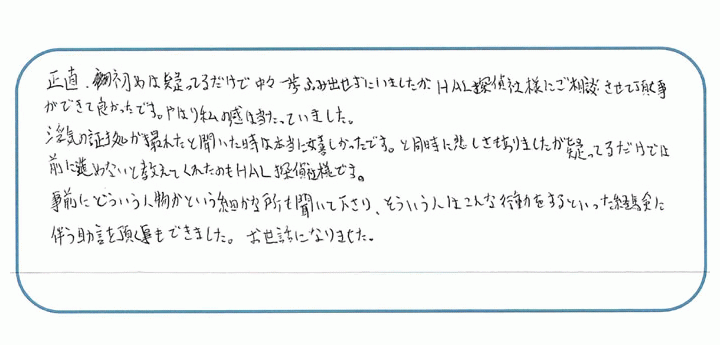 正直、最初は疑ってるだけで中々一歩ふみ出せずにいましたが、HAL探偵社様にご相談させて頂く事
ができて良かったです。やはり私の感は当たっていました。
浮気の証拠が撮れたと聞いた時は本当に嬉しかったです。と同時に悲しさもありましたが疑ってるだけでは
前に進めないと教えてくれたのもHAL探偵社様です。
事前にどういう人物かという細かな所も聞いて下さり、そういう人はこんな行動をするといった経験に
伴う助言を頂く事もできました。お世話になりました。